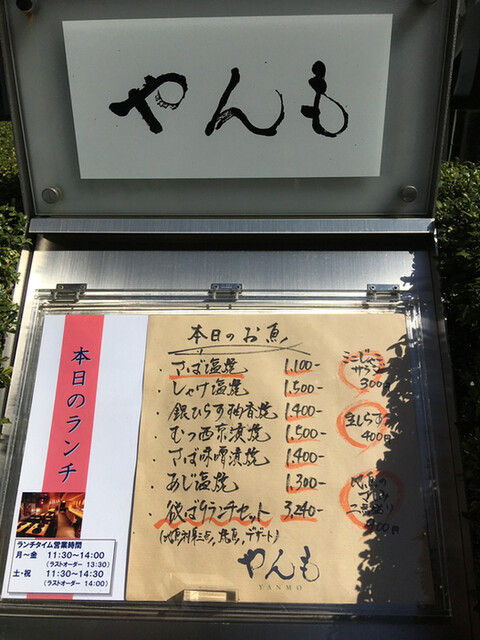 やんも
本日のランチ
ランチタイム営業時間
月〜金 11:30〜14:00
(ラストオーダー 13:30)
土・祝 11:30〜14:30
(ラストオーダー 14:00)
本日のお魚
・さば塩焼 1.100-
・しゃけ塩焼 1.500-
・銀ひらす柚香焼 1.400-
・むつ西京漬焼 1.500-
・さば味噌漬焼 1.400-
・あじ塩焼 1.300-
・欲ばりランチセット 3.240-
デザート)
ミニじゃこ
サラダ
300円
釜しらす
400円
300円
やんも
YANMO